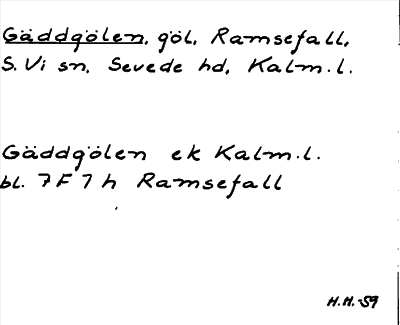 Gäddgölen, göl, Ramsefall,
S. Vi sn, Sevede hd, Kalm. l.
Gäddgölen ek Kalm. l.
bl. 7F7h Ramsefall
H.H.-59